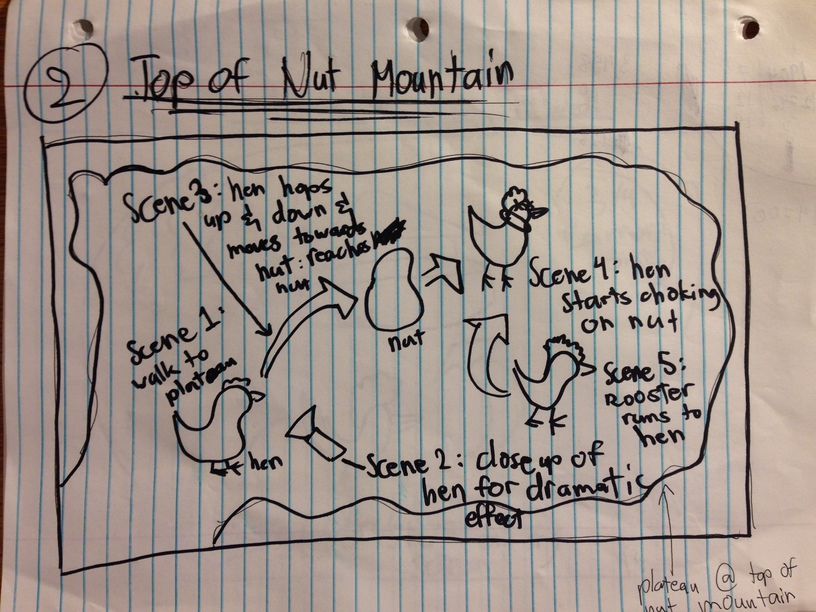 2 Top of Nut Mountain
Scene 3: hen hops
up & down &
moves towards
nut: reaches
nut
Scene 1:
walk to
plateau
hen
nut
Scene 4: hen
starts choking
on nut
Scene 5:
Rooster
runs to
hen
Scene 2: close up of
hen for dramatic
effect
plateau @ top of
nut mountain